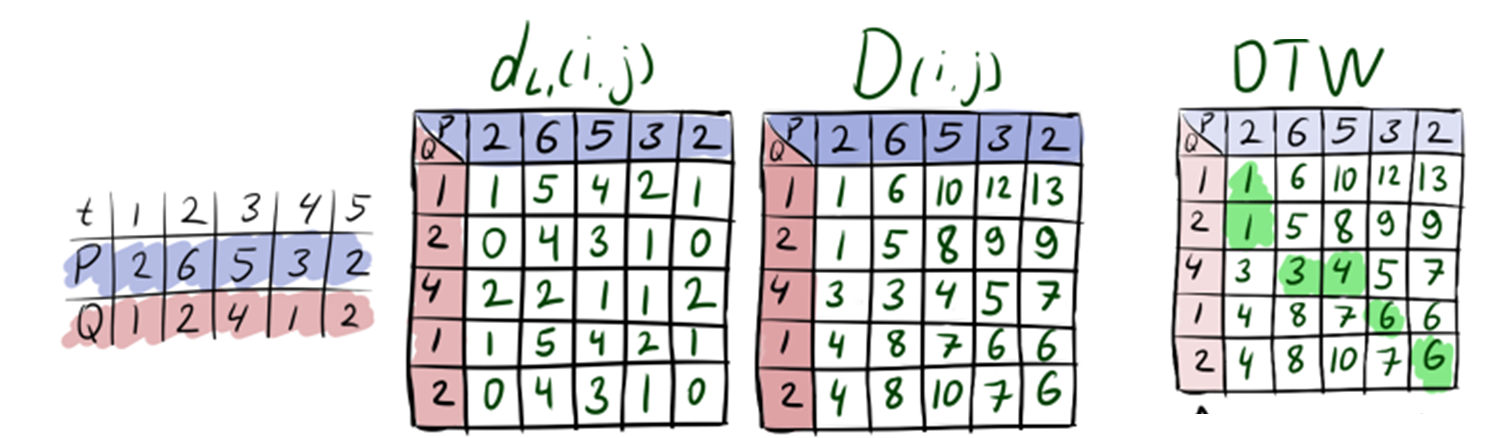 d_{L_1}(i,j)
D(i,j)
DTW
t 1 2 3 4 5
P 2 6 5 3 2
Q 1 2 4 1 2
P Q 2 6 5 3 2
1 1 5 4 2 1
2 0 4 3 1 0
4 2 2 1 1 2
1 1 5 4 2 1
2 0 4 3 1 0
P Q 2 6 5 3 2
1 1 6 10 12 13
2 1 5 8 9 9
4 3 3 4 5 7
1 4 8 7 6 6
2 4 8 10 7 6
P Q 2 6 5 3 2
1 1 6 10 12 13
2 1 5 8 9 9
4 3 3 4 5 7
1 4 8 7 6 6
2 4 8 10 7 6